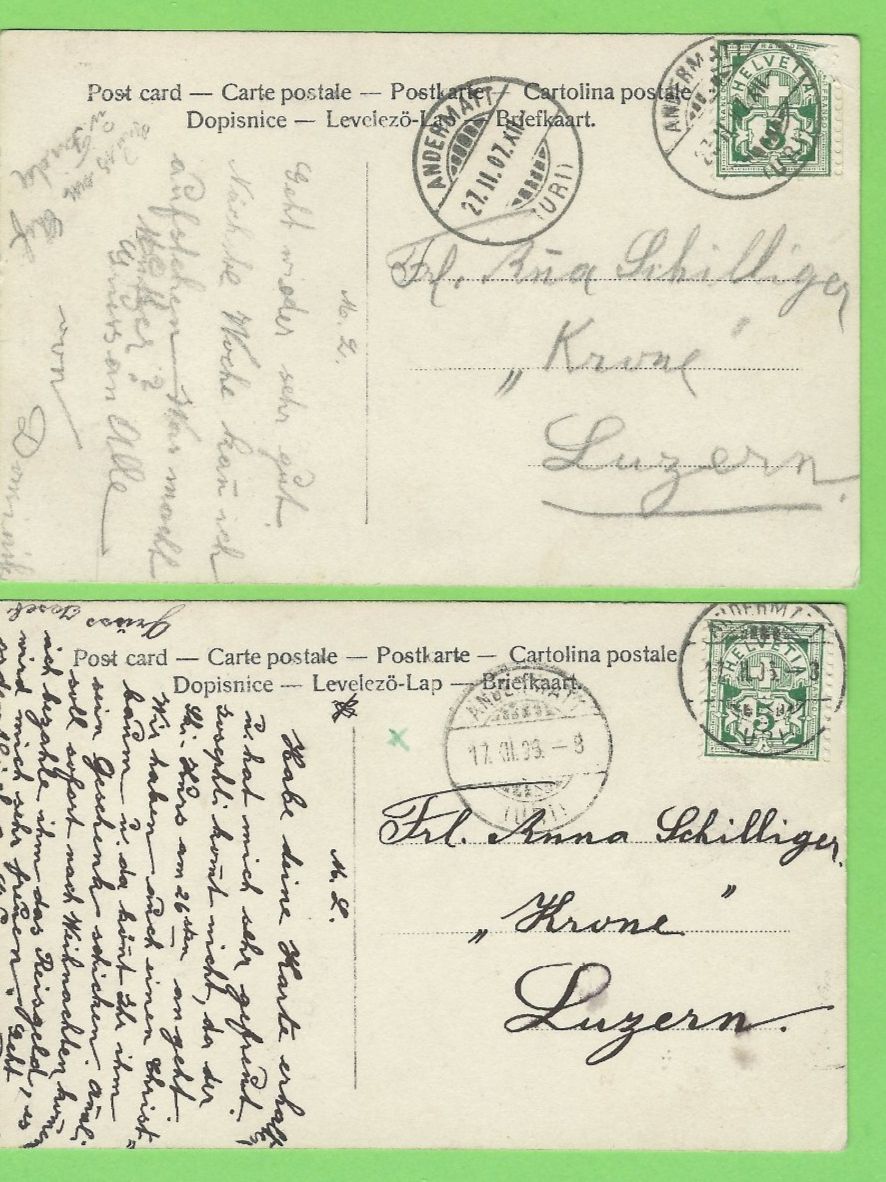 Post card — Carte postale — Postkarte — Cartolina postale
Dopisnice — Levelezö-Lap — Briefkaart.
ANDERMATT
27.II.07.XII
(URI)
ANDERMATT
(URI)
HELVETIA
5
Geht wieder sehr gut
Nächste Woche kan̄ ich
aufstehen — Was macht
Gruss an Alle
von
Dominik
M. L.
Frl. An̄a Schilliger
„Krone"
Luzern.
Post card — Carte postale — Postkarte — Cartolina postale
Dopisnice — Levelezö-Lap — Briefkaart.
ANDERMATT
17.XII.06.–8
(URI)
ANDERMATT
URI
HELVETIA
5
Gruss Josef
Habe deine Karte erhalt
u. hat mich sehr gefreut.
kom̄t nicht, da der
Ski-Kurs am 26sten angeht
Wir haben auch einen Christ-
baum u. da kön̄t Ihr ihm
sein Geschenk schicken.
soll sofort nach Weihnachten
ich bezahle ihm das Reisgeld, es
wird mich sehr freuen. Geht
M. L.
Frl. Anna Schilliger.
„Krone"
Luzern.